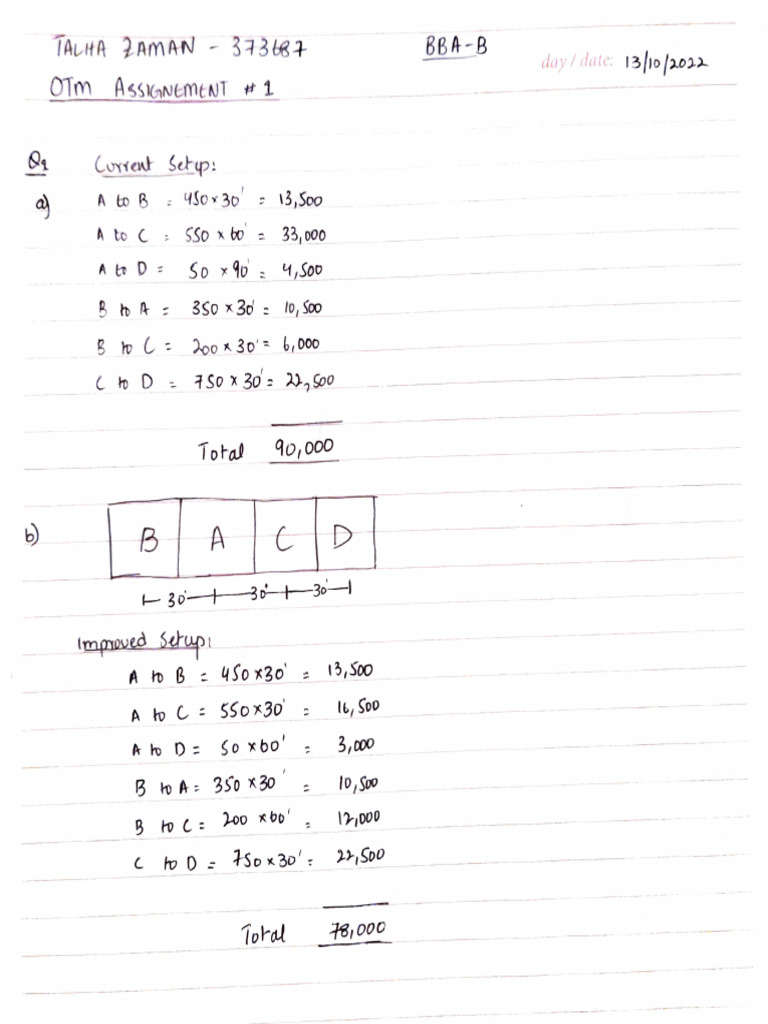 TALHA ZAMAN - 373687 BBA-B day / date: 13/10/2022
OTM ASSIGNEMENT # 1
Q1 Current Setup:
a) A to B = 450 x 30' = 13,500
A to C = 550 x 60' = 33,000
A to D = 50 x 90' = 4,500
B to A = 350 x 30' = 10,500
B to C = 200 x 30' = 6,000
C to D = 750 x 30' = 22,500
Total 90,000
b) B A C D
30' 30' 30'
Improved Setup:
A to B = 450 x 30' = 13,500
A to C = 550 x 30' = 16,500
A to D = 50 x 60' = 3,000
B to A = 350 x 30' = 10,500
B to C = 200 x 60' = 12,000
C to D = 750 x 30' = 22,500
Total 78,000